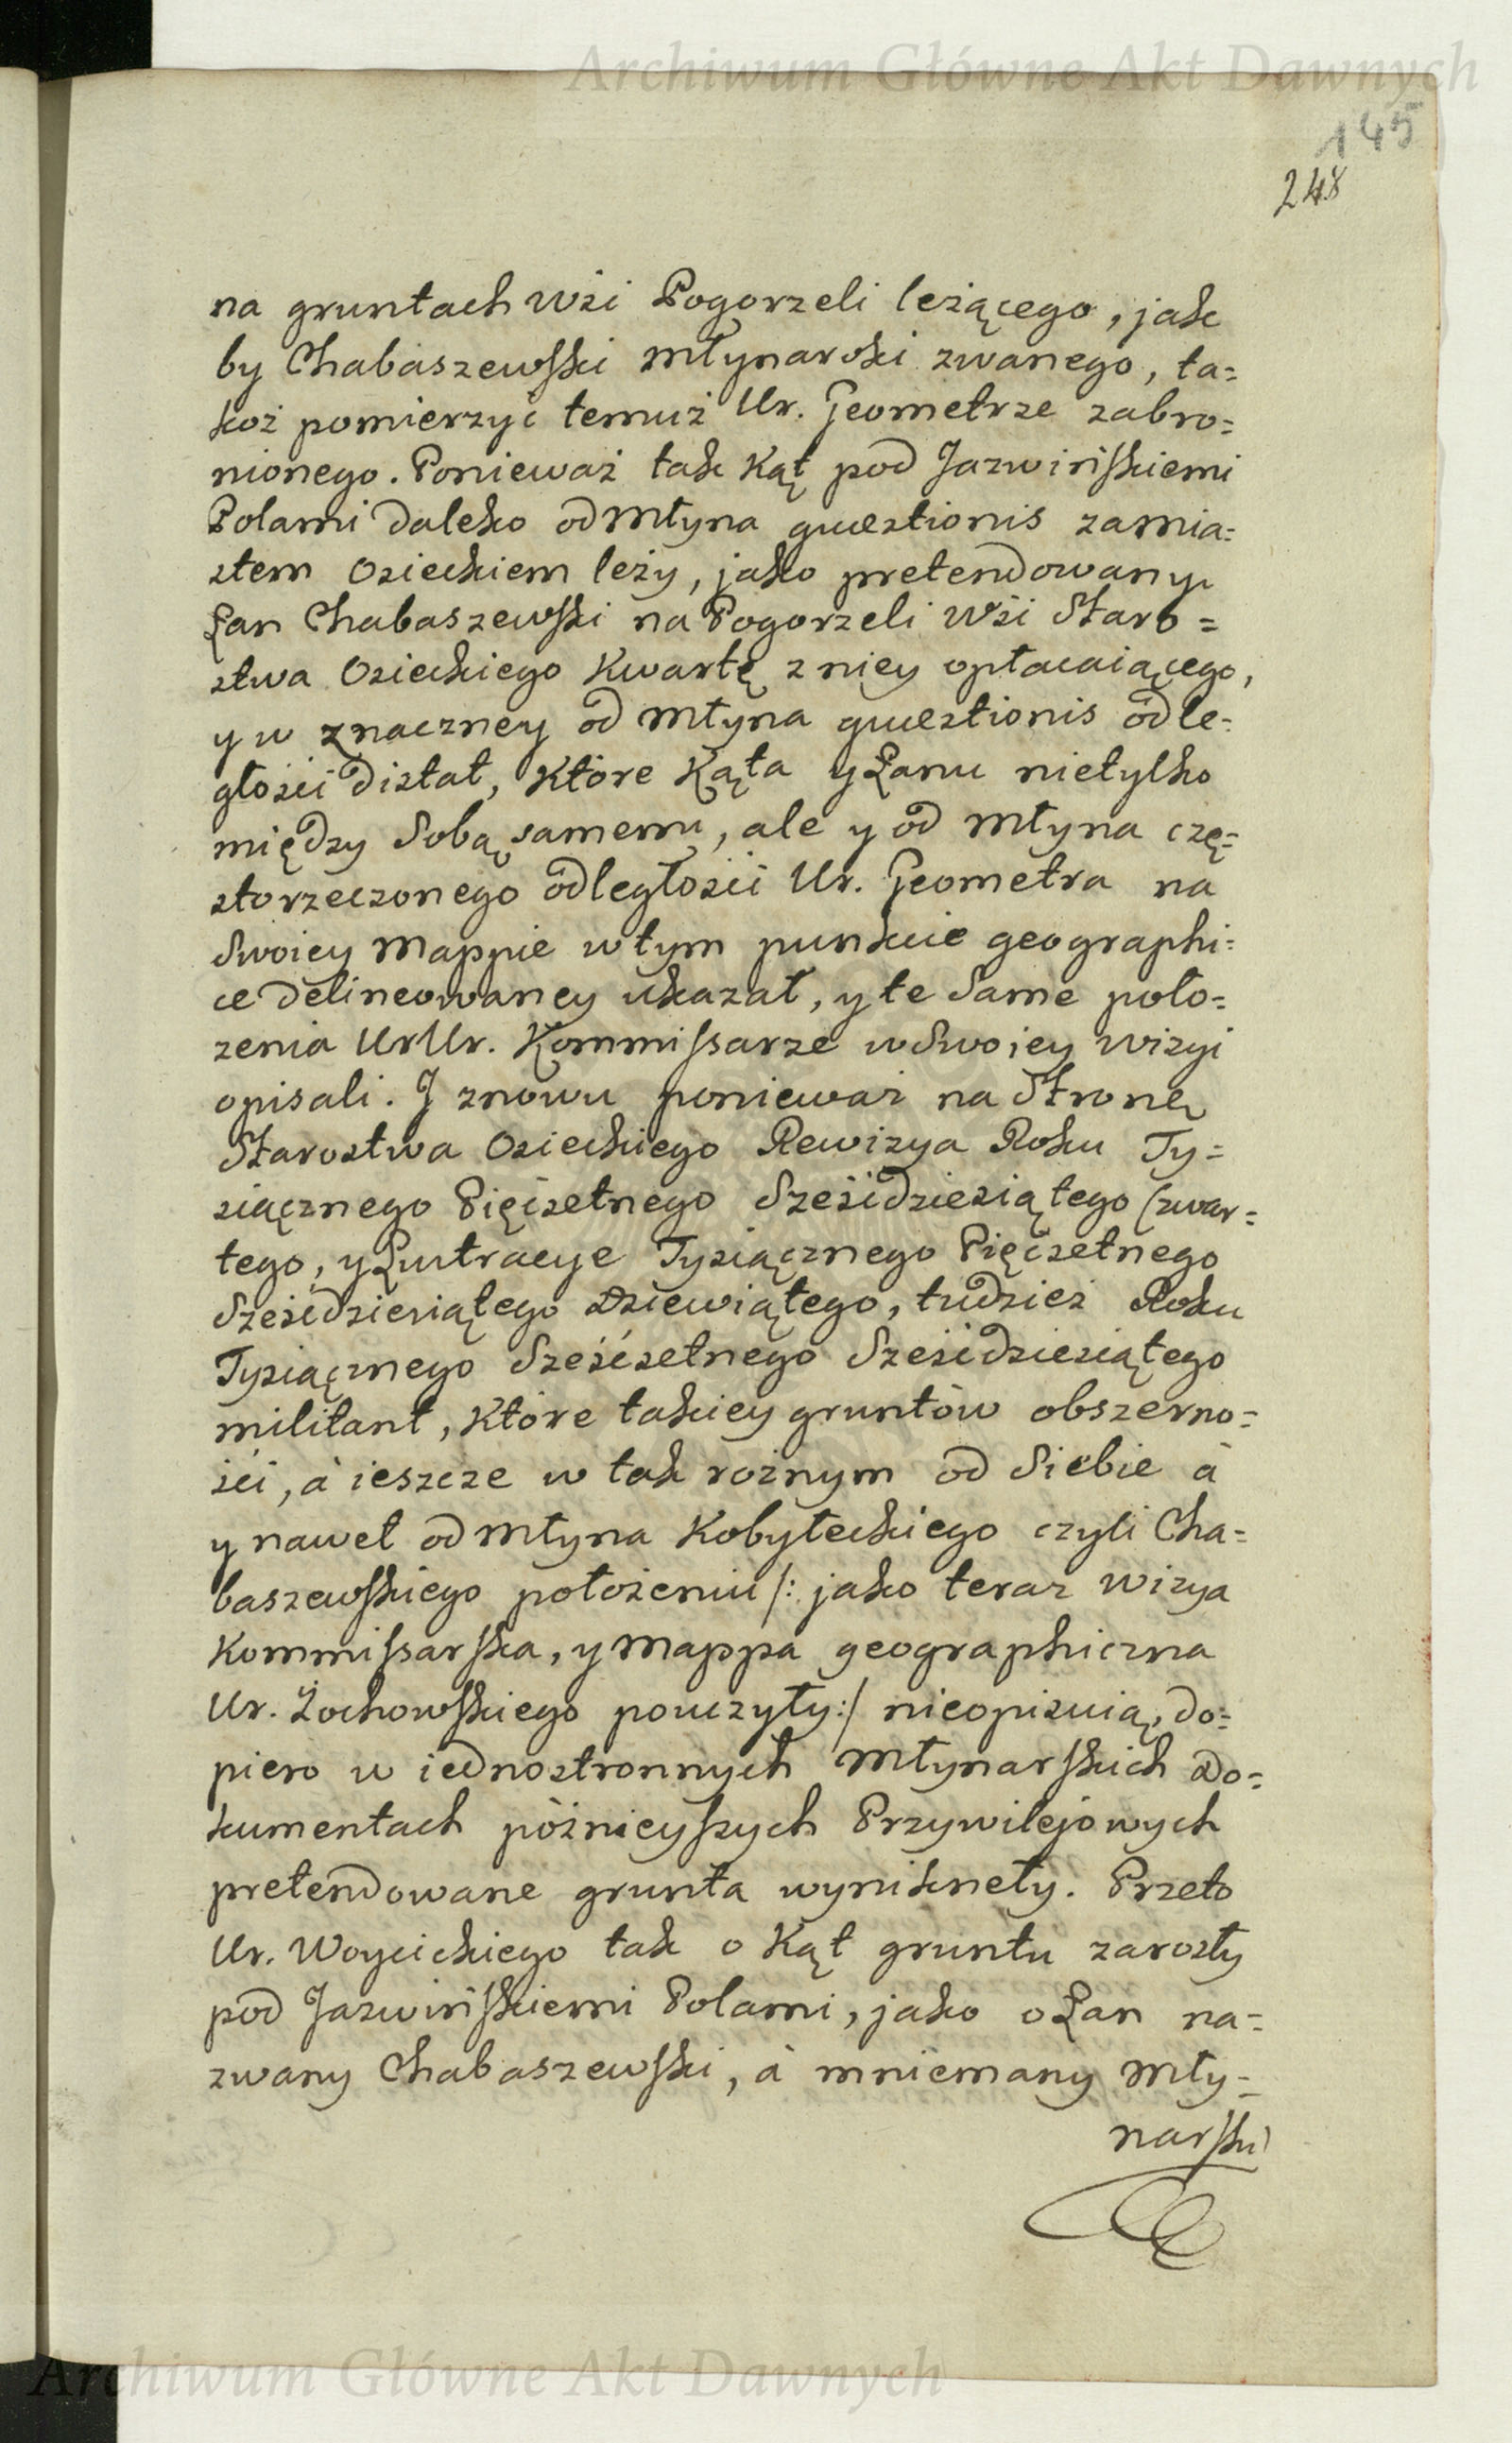 Archiwum Główne Akt Dawnych
145
248
na gruntach Wsi Pogorzeli leżącego, jak
by Chabaszewski Młynarski zwanego, ta=
koż pomierzyć temuż Ur. Geometrze zabro=
nionego. Ponieważ tak Kąt pod Jazwińskiemi
Polami daleko od Młyna questionis za mia=
stem Osieckiem leży, jako pretendowany
Łan Chabaszewski na Pogorzeli Wsi Staro=
stwa Osieckiego Kwartę z niey opłacaiącego,
y w znaczney od Młyna questionis odle=
głości distat, które Kąta y Łanu nietylko
między Sobą samemu, ale y od Młyna czę=
storzeczonego odległości Ur. Geometra na
Swoiey Mappie w tym punkcie geographi=
ce delineowaney ukazał, y te Same poło=
zenia UrUr. Kommissarze w Swoiey Wizyi
opisali. J znowu ponieważ na Stronę
Starostwa Osieckiego Rewizya Roku Ty=
siącznego Pięćsetnego Sześćdziesiątego Czwar=
tego, y Lustracye Tysiącznego Pięcsetnego
Sześćdziesiątego Dziewiątego, tudzież Roku
Tysiącznego Sześćsetnego Sześćdziesiątego
militant, które takiey gruntów obszerno=
ści, à ieszcze w tak rożnym od Siebie à
y nawet od Młyna Kobyłeckiego czyli Cha=
baszewskiego położeniu /: jako teraz Wizya
Kommissarska, y Mappa geographiczna
Ur. Żochowskiego pouczyły :/ nieopisuią, do=
piero w iednostronnych Młynarskich Do=
kumentach późnieyszych Przywilejowych
pretendowane grunta wyniknęły. Przeto
Ur. Woycickiego tak o Kąt gruntu zarosły
pod Jazwińskiemi Polami, jako o Łan na=
zwany Chabaszewski, à mniemany Mły=
narski
Archiwum Główne Akt Dawnych